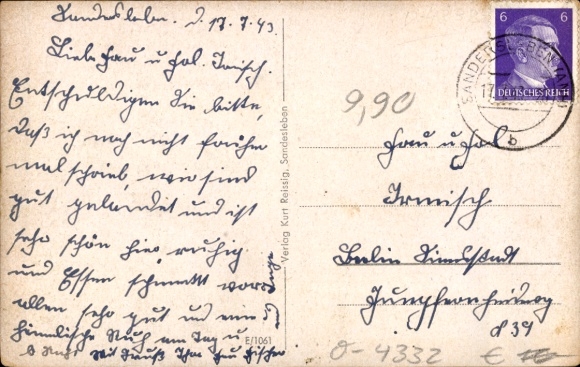 Sandersleben. d. 17.7.43
Liebe Frau u. Frl. Irmisch.
Entschuldigen Sie bitte,
daß ich noch nicht früher
mal schrieb, wir sind
gut gelandet und ist
sehr schön hier, ruhig
und Essen schmeckt
allen sehr gut und eine
himmlische Ruh am Tag u
Nacht. Mit Gruß Ihre Frau Fischer
Verlag Kurt Reissig, Sandesleben
E/1061
6 6
DEUTSCHES REICH
SANDERSLEBEN (ANH)
17.
b
9,90
Frau u Frl
Irmisch
Berlin Siemsstadt
Jungfernheideweg
39
0-4332 €